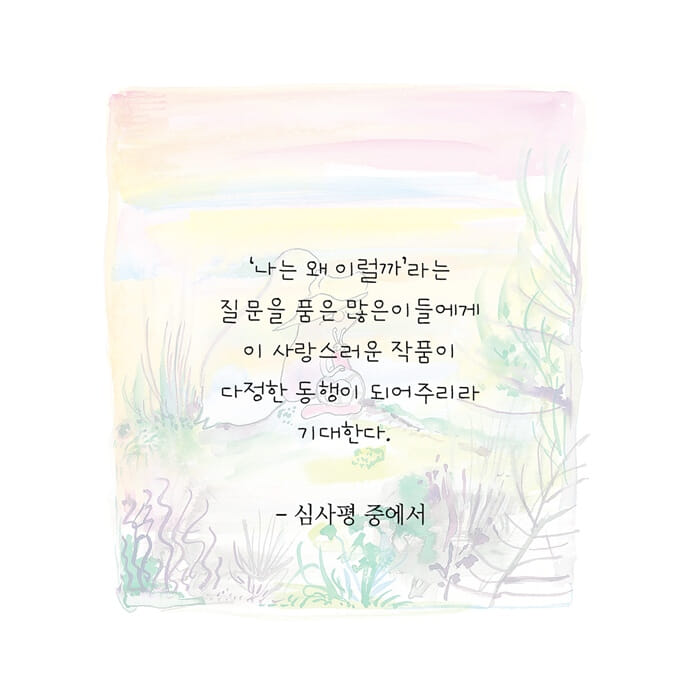 ‘나는 왜 이럴까’라는
질문을 품은 많은이들에게
이 사랑스러운 작품이
다정한 동행이 되어주리라
기대한다.
– 심사평 중에서